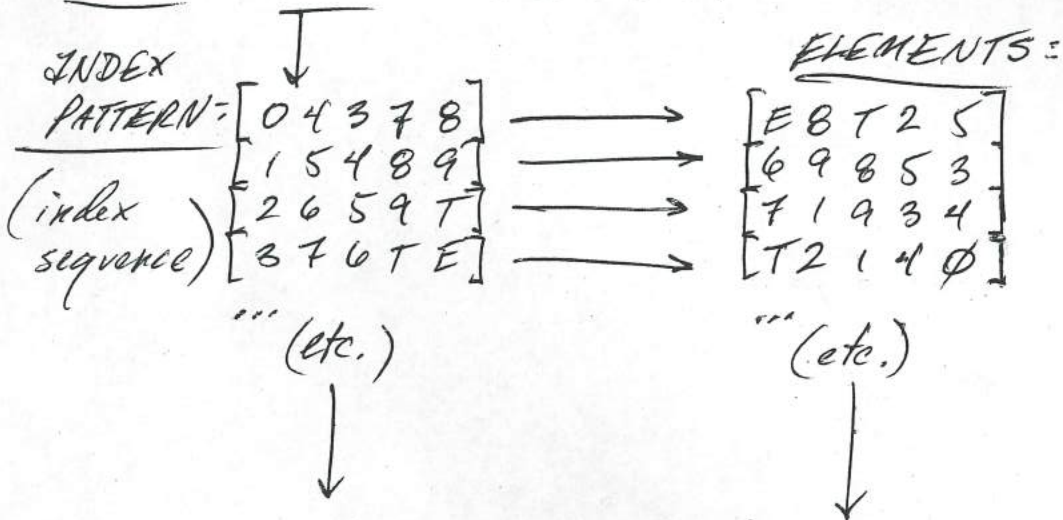 INDEX
PATTERN:
(index
sequence)
[0 4 3 7 8]
[1 5 4 8 9]
[2 6 5 9 T]
[3 7 6 T E]
... (etc.)
ELEMENTS:
[E 8 T 2 5]
[6 9 8 5 3]
[7 1 9 3 4]
[T 2 1 4 Ø]
... (etc.)